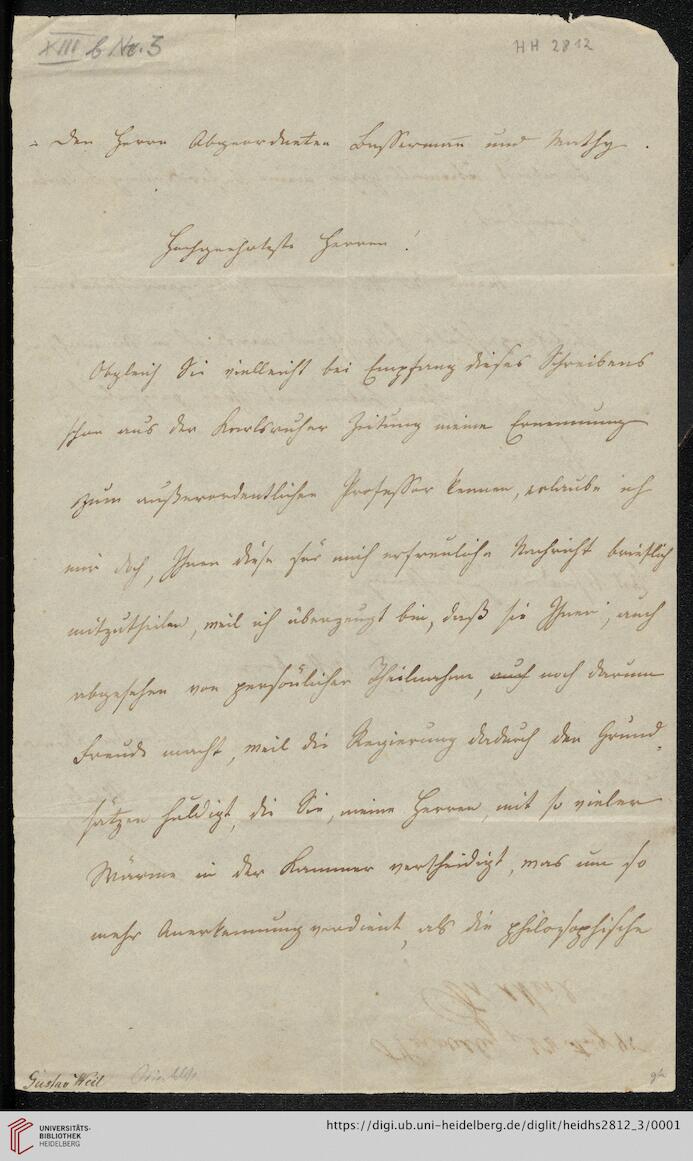 XIII b No. 3
HH 2812
Den Herrn Abgeordneten Bassermann und Mathy.
Hochgeehrteste Herren!
Obgleich Sie vielleicht bei Empfang dieses Schreibens
schon aus der Karlsruher Zeitung meine Ernennung
zum außerordentlichen Professor kennen, erlaube ich
mir doch, Ihnen diese für mich erfreuliche Nachricht brieflich
mitzutheilen, weil ich überzeugt bin, daß sie Ihnen, auch
abgesehen von persönlicher Theilnahme, auch noch darum
Freude macht, weil die Regierung dadurch den Grund
sätzen huldigt, die Sie, meine Herren, mit so vieler
Wärme in der Kammer vertheidigt, was um so
mehr Anerkennung verdient, als die philosophische
Gustav Weil
UNIVERSITÄTS-
BIBLIOTHEK
HEIDELBERG
https://digi.ub.uni-heidelberg.de/diglit/heidhs2812_3/0001